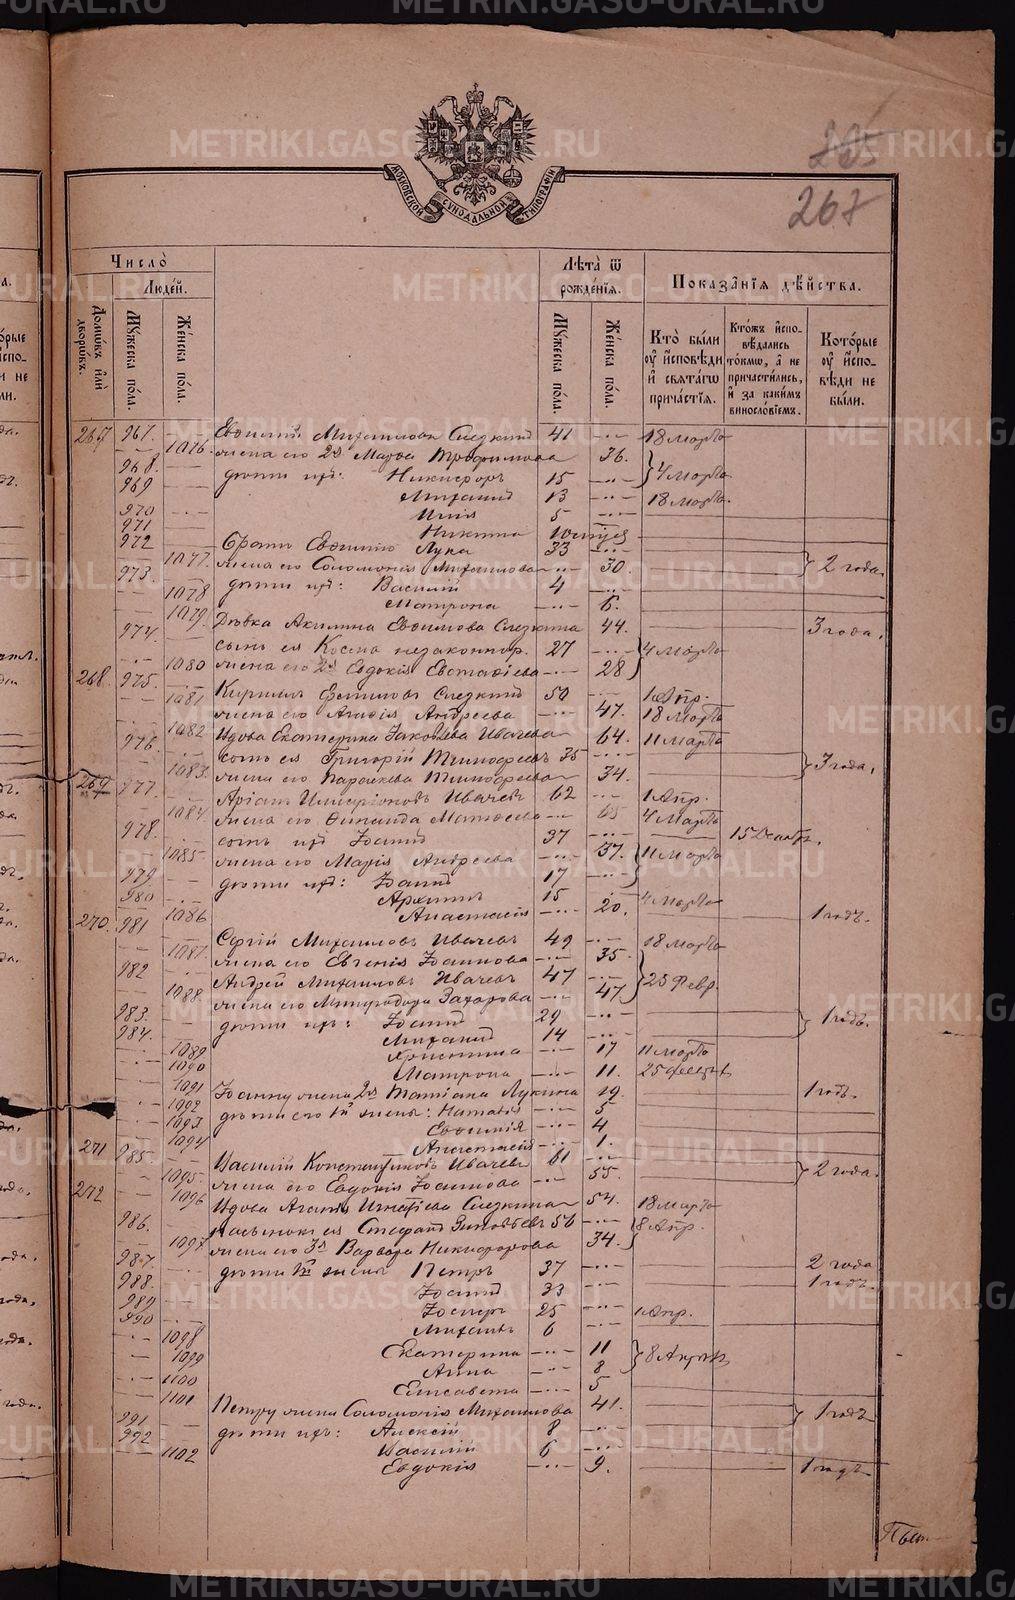 METRIKI.GASO-URAL.RU
267
МОСКОВСКОЙ СѴНОДАЛЬНОЙ ТИПОГРАФІИ
Число̀
Людей.
Домѡвъ и҆лѝ дворѡвъ.
Мꙋжеска по́ла.
Же́нска по́ла.
Лѣ́та ѿ рожде́нїѧ.
Мꙋжеска по́ла.
Же́нска по́ла.
Показа̑нїѧ дѣ́йства.
Кто̀ бы́ли ᲂу҆ и҆сповѣди и҆ свѧта́гѡ прича́стїѧ.
Кто́жъ и҆спо-вѣдались то́кмѡ, а҆ не причасти́лись, и҆ за каки́мъ виносло́вїемъ.
Кото́рые ᲂу҆ и҆спо-вѣди не бы́ли.
267 967. Евѳимій Михаиловъ Слезкинъ 41 18 марта
1076. жена его 2я Марѳа Трофимова 36.
968. дѣти ихъ: Никифоръ 15 4 марта
969 Михаилъ 13 18 марта.
970 Илія 5
971 Никита
972 Братъ Евѳимію Лука 33
1077. жена его Соломонія Михаилова 30. 2 года.
973. дѣти ихъ: Василій 4
1078 Матрона 6.
1079. Дѣвка Акилина Евѳимова Слезкина 44. 3 года.
974. сынъ ея Косма незаконнор. 27 4 марта
1080 жена его 2я Евдокія Евстафіева 28
268. 975. Кириллъ Слезкинъ 50 1 Апр.
1081 жена его Агафія Андреева 47. 18 марта
1082 Вдова Екатерина Іаковлева Ивачева 64. 11 марта
976. сынъ ея Григорій Тимофеевъ 35
1083. жена его Параскева Тимофеева 34. 3 года.
269 977. Иларіоновъ Ивачевъ 62 1 Апр.
1084. жена его Матѳеева 65 4 марта
978. сынъ ихъ Іоаннъ 37 15 Декабр.
1085. жена его Марія Андреева 37. 11 марта
979 дѣти ихъ: Іоаннъ 17
980. Архиппъ 15 4 марта
1086 Анастасія 20. 1 годъ.
270. 981 Сергій Михаиловъ Ивачевъ 49 18 марта
1087. жена его Евгенія Іоаннова 35.
982 Андрей Михаиловъ Ивачевъ 47 25 Февр.
1088. жена его Митродора Захарова 47
983. дѣти ихъ: Іоаннъ 29 1 годъ.
984. Михаилъ 14
1089 Христина 17 11 марта
1090 Матрона 11. 25 февраля
1091 Іоанну жена 2я Татіана Лукина 19. 1 годъ.
1092 дѣти его 1й жены: Наталія 5
1093 Евѳимія 4
1094 Анастасія 1.
271 985. Василій Константиновъ Ивачевъ 61 2 года.
1095. жена его Евдокія Іоаннова 55.
272 1096 Вдова Агафія Игнатіева Слезкина 54. 18 марта
986. Пасынокъ ея Стефанъ Зиновьевъ 56 8 Апр.
1097 жена его 3я Варвара Никифорова 34.
987. дѣти 1й жены Петръ 37 2 года
988. Іоаннъ 33 1 годъ.
989. Іосифъ 25 1 Апр.
990 Михаилъ 6
1098 Екатерина 11 8 Апрѣля
1099 Анна 8
1100 Елисавета 5
1101 Петру жена Соломонія Михаилова 41. 1 годъ
991. дѣти ихъ: Алексій 8
992. Василій 6
1102 Евдокія 9. 1 годъ.